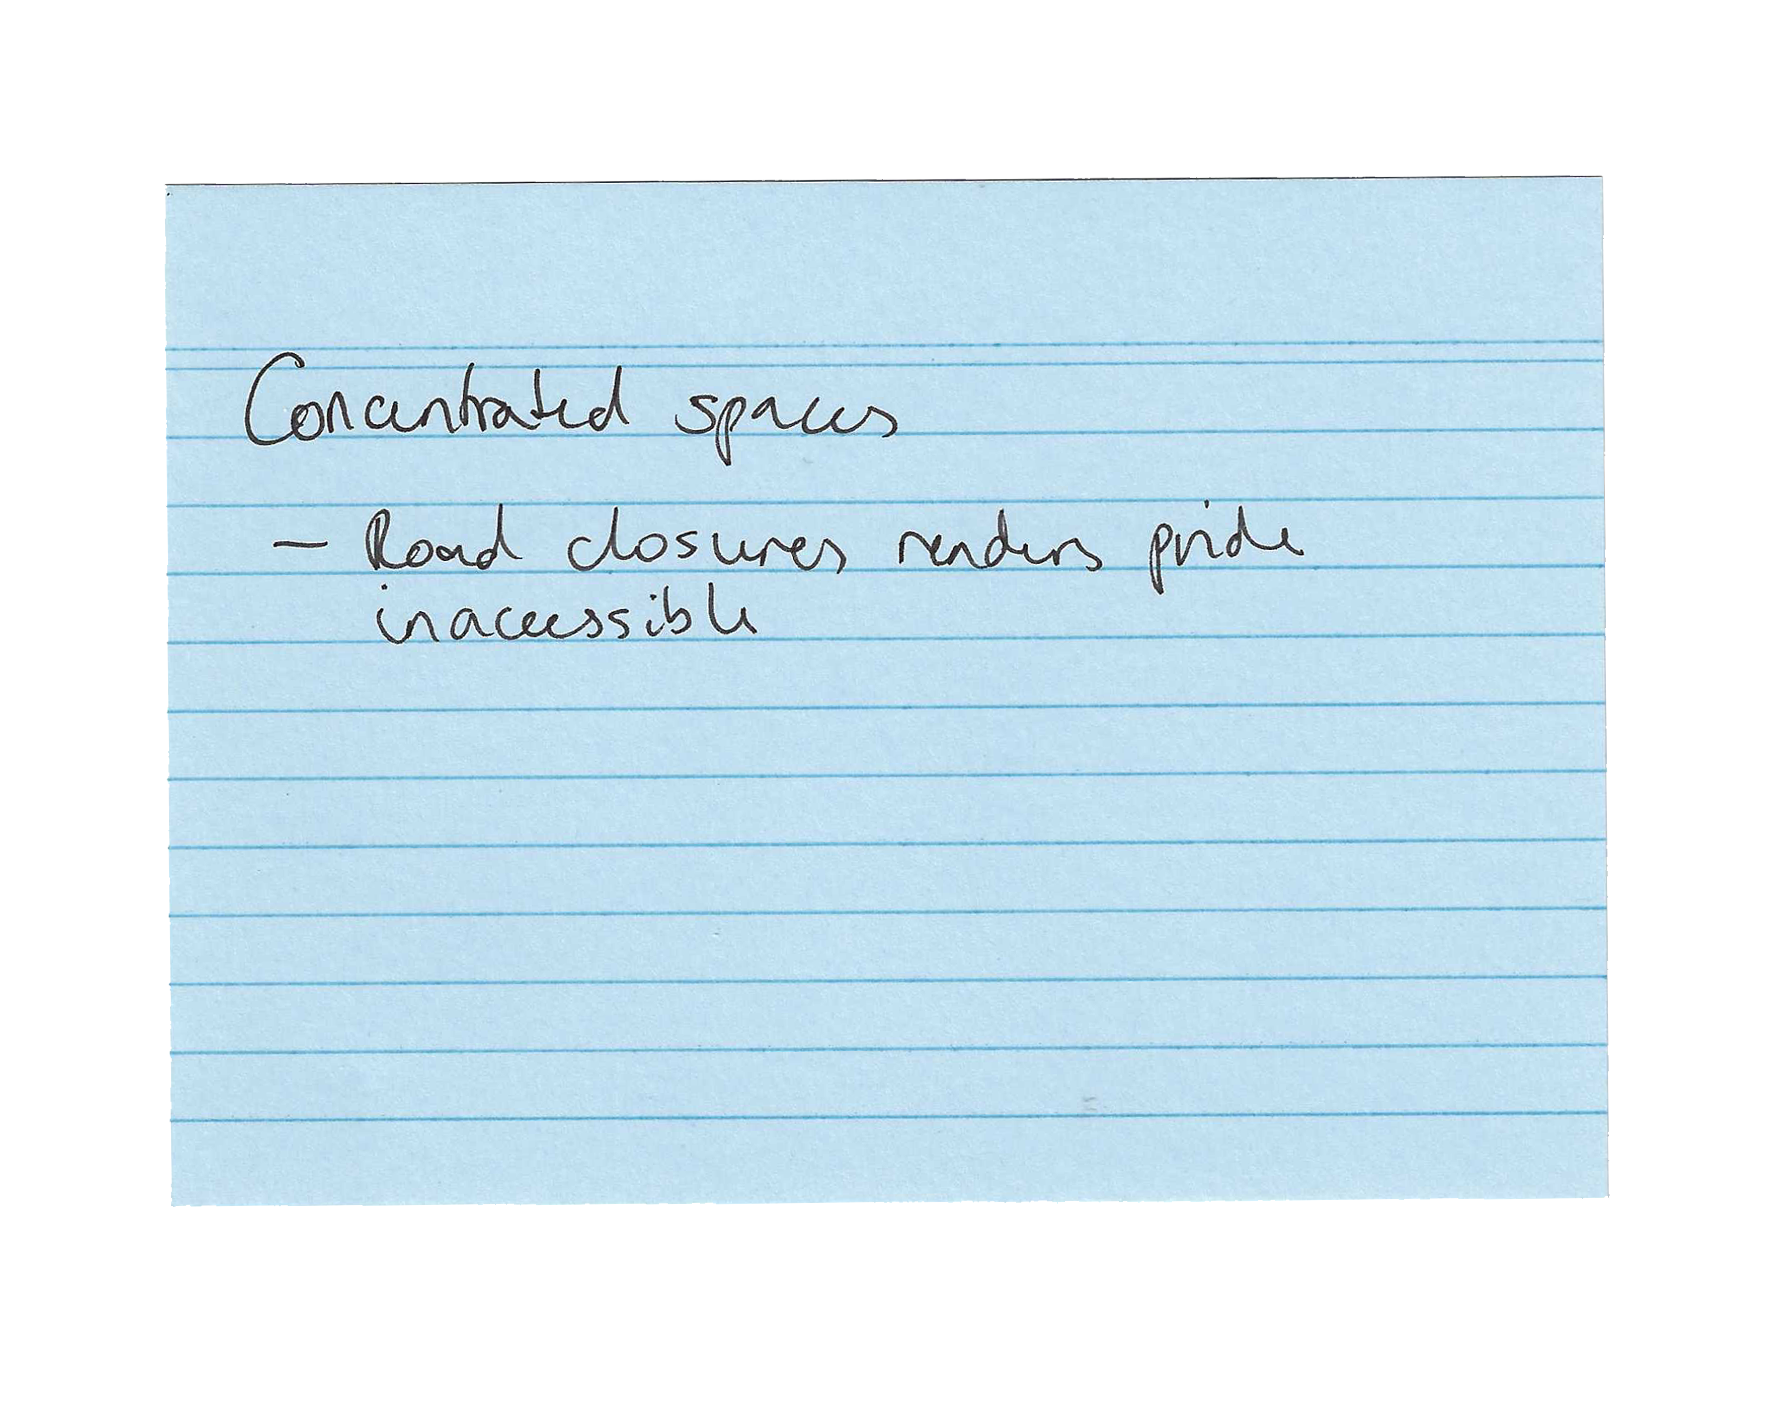 Concentrated spaces
- Road closures renders pride
inaccessible